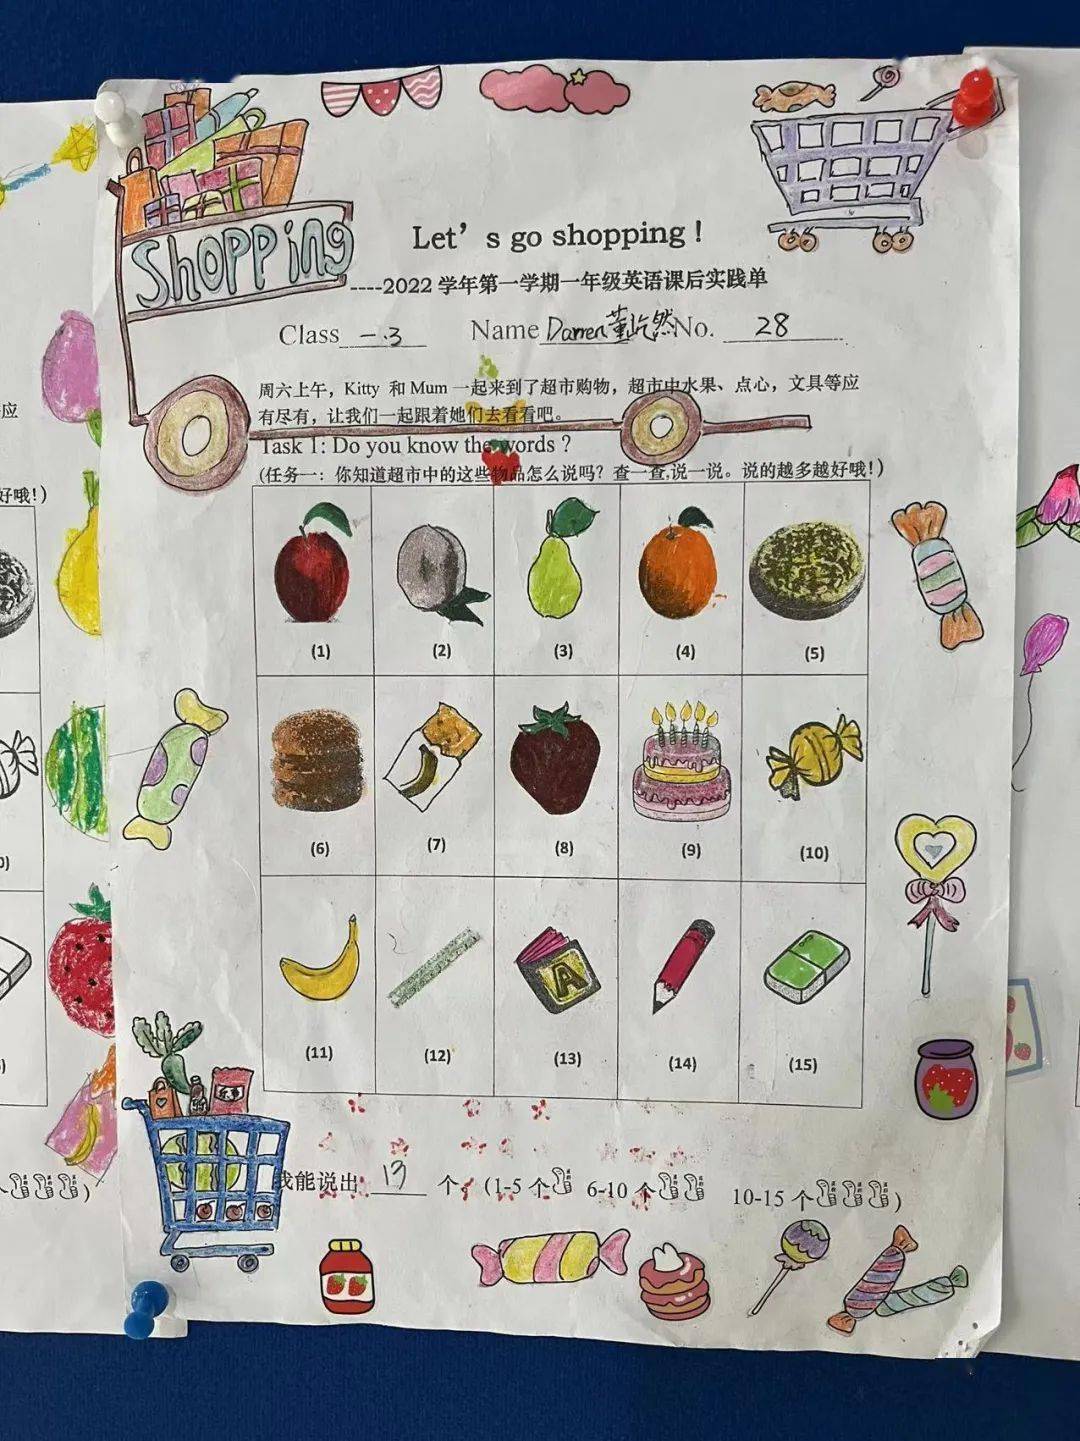 Shopping
Let's go shopping!
----2022 学年第一学期一年级英语课后实践单
Class 一.3 Name Darren 董屹然 No. 28
周六上午，Kitty 和 Mum 一起来到了超市购物，超市中水果、点心，文具等应
有尽有，让我们一起跟着她们去看看吧。
Task 1: Do you know the words ?
(任务一：你知道超市中的这些物品怎么说吗？查一查,说一说。说的越多越好哦！)
(1) (2) (3) (4) (5)
(6) (7) (8) (9) (10)
A
(11) (12) (13) (14) (15)
我能说出 13 个。(1-5 个 6-10 个 10-15 个)
应
好哦！)